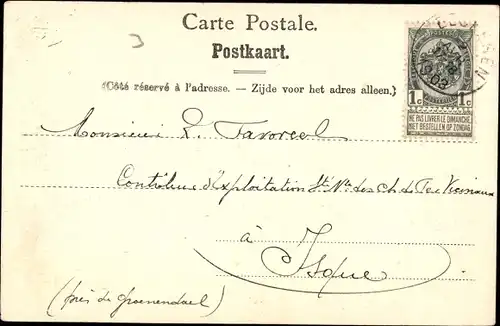 Carte Postale.
Postkaart.
(Côté réservé à l'adresse. — Zijde voor het adres alleen.)
1c 1c
NE PAS LIVRER LE DIMANCHE
NIET BESTELLEN OP ZONDAG
1903
Monsieur L.
Contrôleur d'exploitation Sté Nle des ch. de Fer Vicinaux
à
Isque
(près de Groenendael)